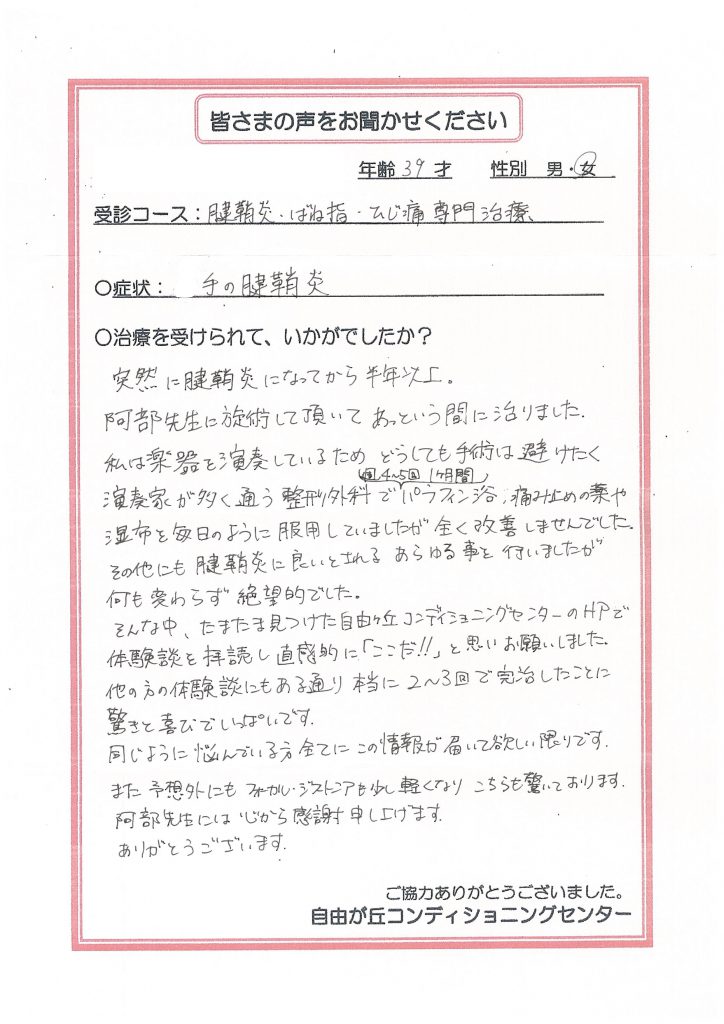 皆さまの声をお聞かせください
年齢 39 才 性別 男・女
受診コース：腱鞘炎・ばね指・ひじ痛専門治療
○症状： 手の腱鞘炎
○治療を受けられて、いかがでしたか？
突然に腱鞘炎になってから半年以上。
阿部先生に施術して頂いて あっという間に治りました.
私は楽器を演奏しているため どうしても手術は避けたく
週4～5回 1ヶ月間
演奏家が多く通う整形外科でパラフィン浴、痛み止めの薬や
湿布を毎日のように服用していましたが全く改善しませんでした.
その他にも腱鞘炎に良いとされる あらゆる事を行いましたが
何も変わらず絶望的でした。
そんな中、たまたま見つけた自由ヶ丘コンディショニングセンターのHPで
体験談を拝読し直感的に「ここだ!!」と思いお願いしました.
他の方の体験談にもある通り本当に2～3回で完治したことに
驚きと喜びでいっぱいです.
同じように悩んでいる方全てにこの情報が届いて欲しい限りです.
また予想外にもフォーカル・ジストニアも少し軽くなり こちらも驚いております.
阿部先生には心から感謝申し上げます.
ありがとうございます.
ご協力ありがとうございました。
自由が丘コンディショニングセンター